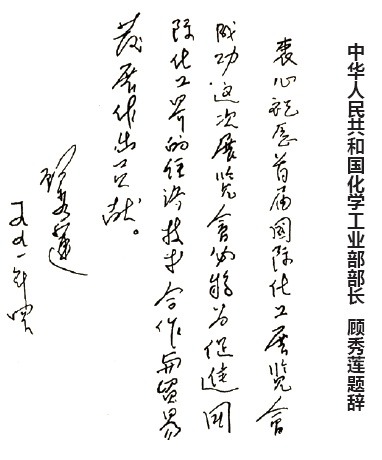 中华人民共和国化学工业部部长 顾秀莲题辞
衷心祝愿首届国际化工展览会
成功这次展览会必将为促进国
际化工界的经济技术合作与贸易
发展作出贡献。
顾秀莲
一九九一年